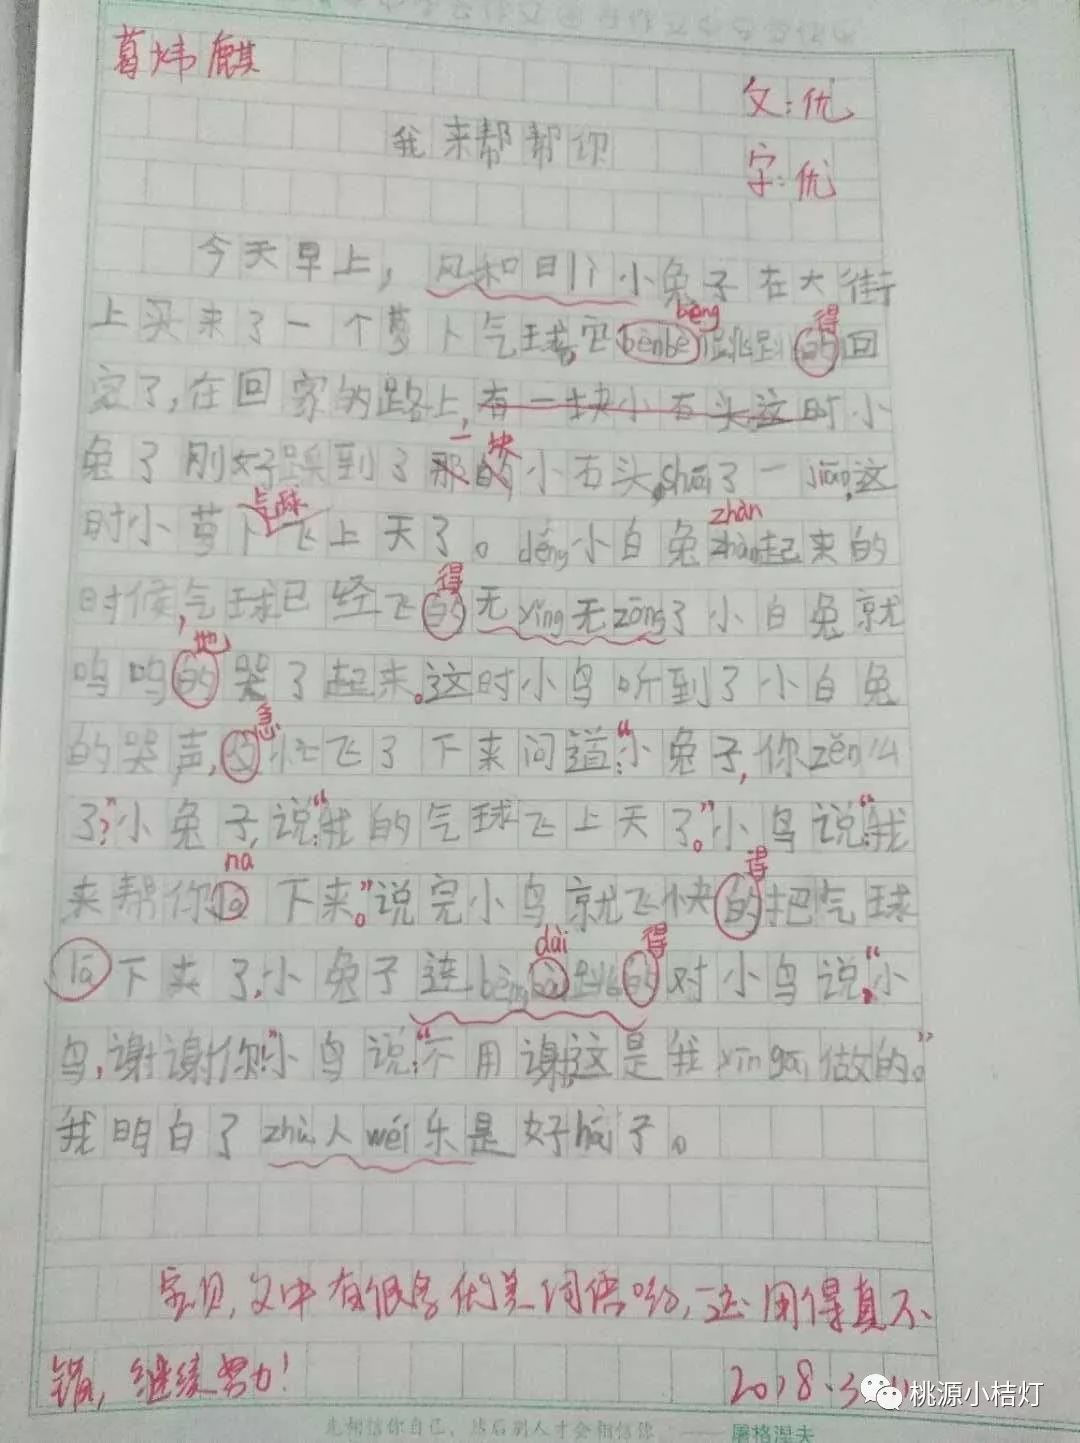 葛炜麒
文:优
我来帮帮你
字:优
今天早上,风和日丽小兔子在大街
bèng 得
上买来了一个萝卜气球,它bènbe跳的回
家了,在回家的路上,有一块小石头这时小
一块
兔子刚好踩到了那的小石头,shuāi了一jiāo,这
气球 zhàn
时小萝卜飞上天了。děng小白兔zhàn起来的
得
时候,气球已经飞的无yǐng无zōng了小白兔就
地
呜呜的哭了起来。这时小鸟听到了小白兔
急
的哭声,及忙飞了下来问道:“小兔子,你zěn么
了?”小兔子,说:“我的气球飞上天了。”小鸟说:“我
na 得
来帮你la下来。”说完小鸟就飞快的把气球
dài 得
lā下来了,小兔子连bèngbài跳的对小鸟说:“小
鸟,谢谢你!”小鸟说:“不用谢,这是我yīnggāi做的。”
我明白了zhù人wéi乐是好hái子。
宝贝,文中有很多优美词语哟,还用得真不
错,继续努力!
2018.3.
桃源小桔灯
先相信你自己,然后别人才会相信你 —— 屠格涅夫